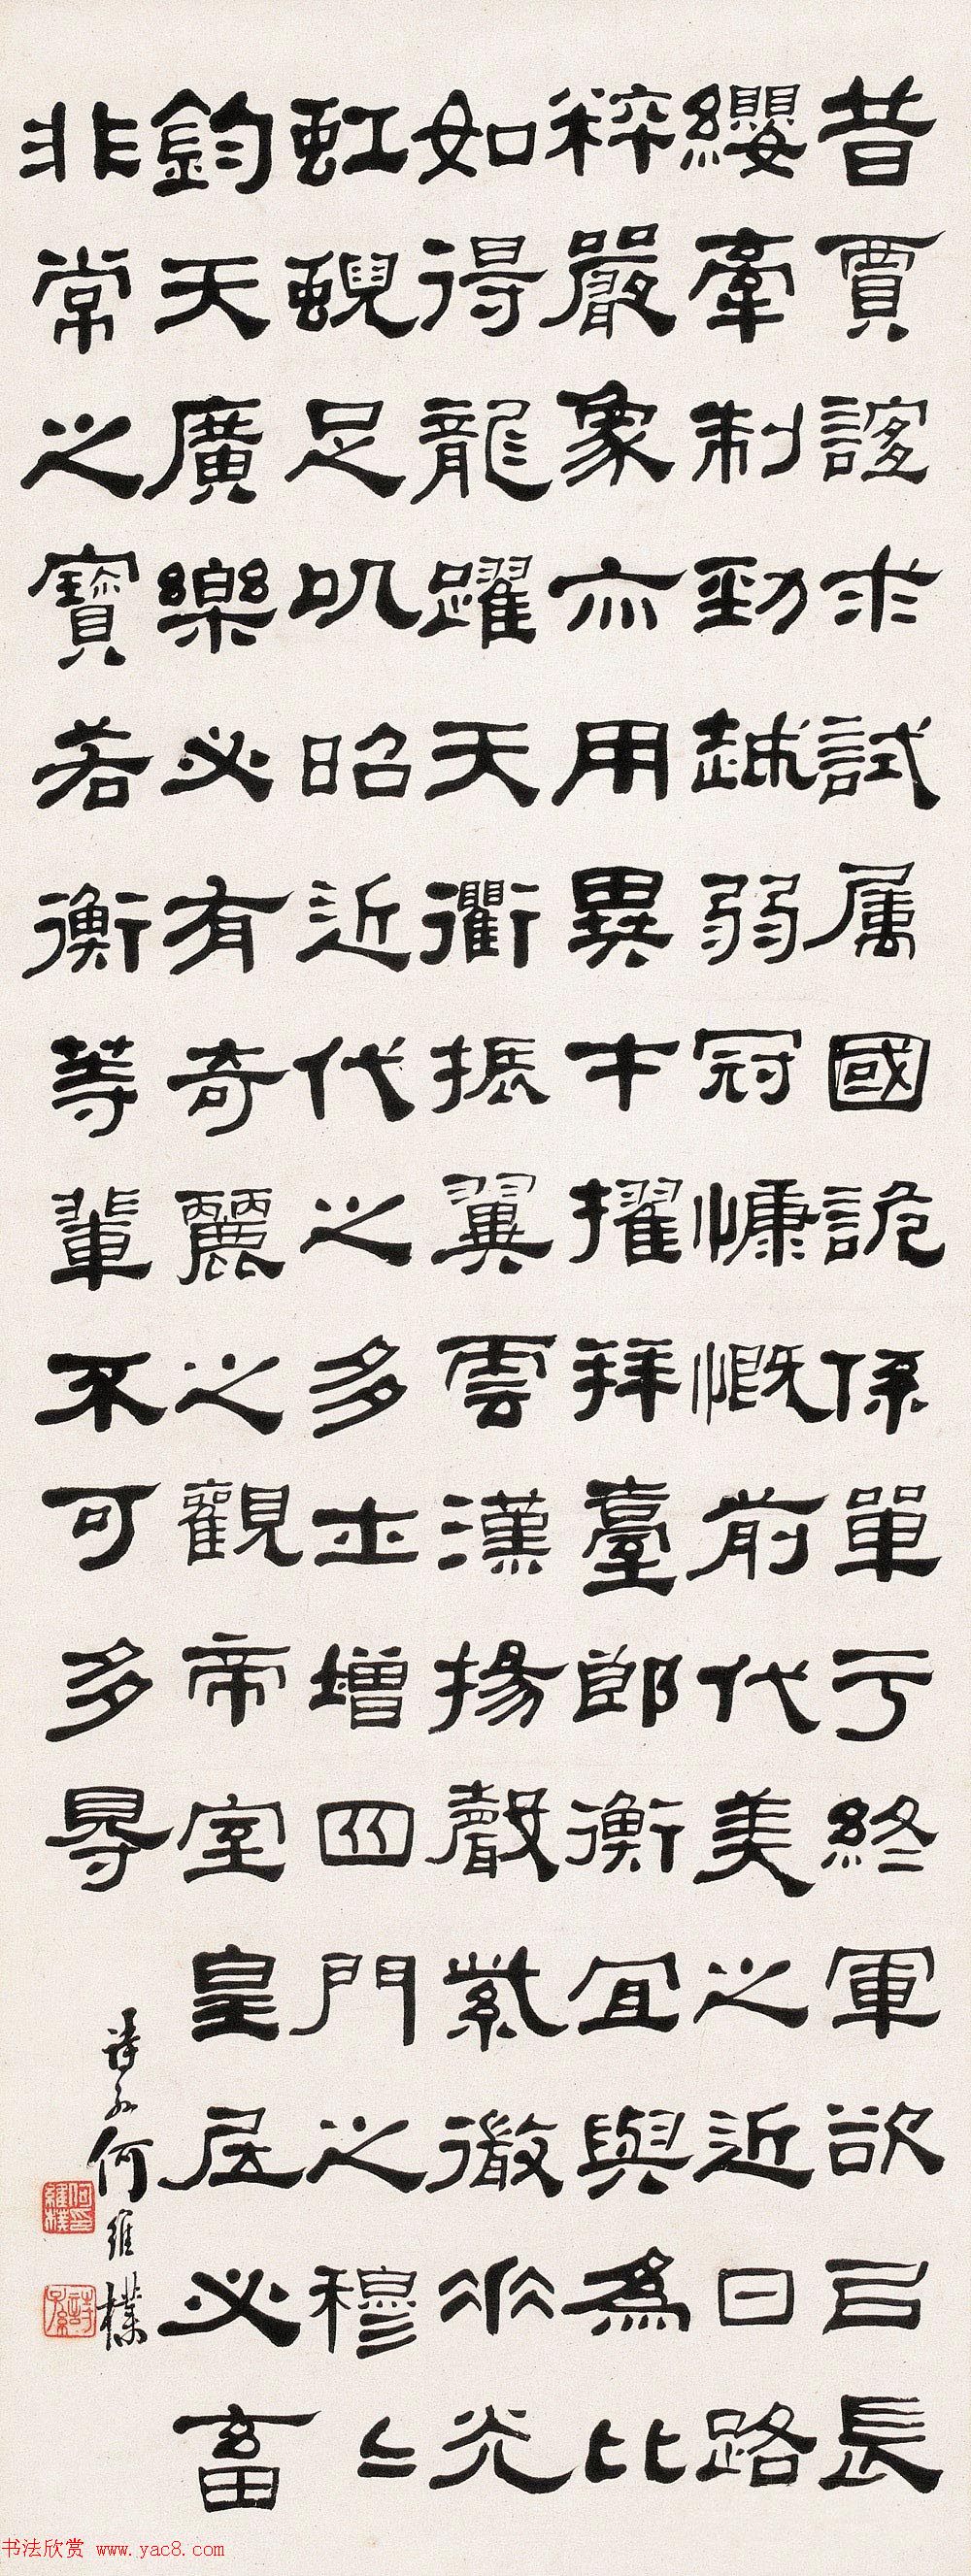 昔賈誼求試属國詭係單于終軍欲以長
纓牽制勁越弱冠慷慨前代美之近日路
粹嚴象亦用異才擢拜臺郎衡宜與為比
如得龍躍天衢振翼雲漢揚聲紫微垂光
虹蜺足以昭近代之多士增四門之穆〻
鈞天廣樂必有奇麗之觀帝室皇居必畜
非常之寶若衡等輩不可多得
詩孫何維樸
何維樸印
詩孫
书法欣赏 www.yac8.com